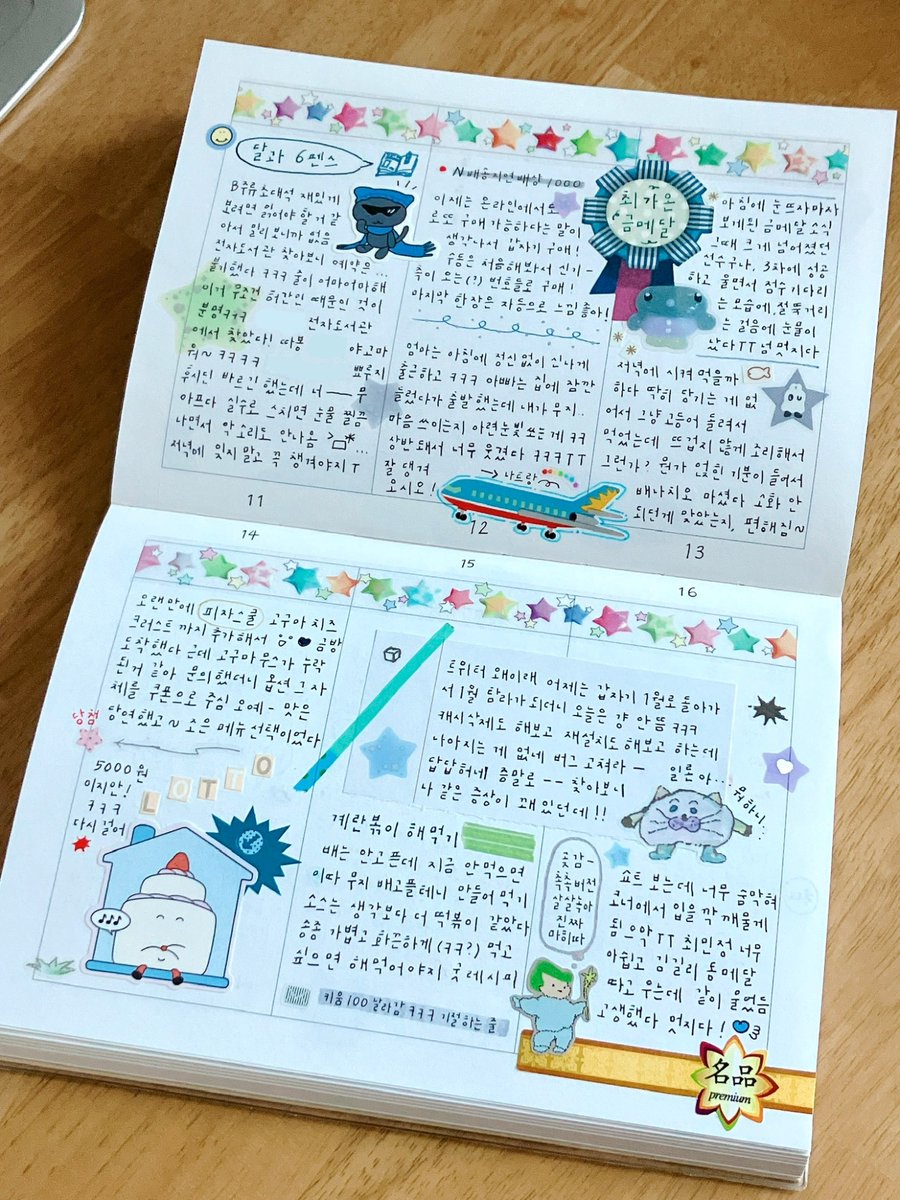 달과 6펜스
B주류초대석 재밌게
보려면 읽어야 할 거 같
아서 밀리 보니까 없음
전자도서관 찾아보니 예약은...
불가했다 ㅋㅋㅋ 술이 어마어마해
이거 무조건 허간민 때문인 것이
분명ㅋㅋㅋ 전자도서관
에서 찾았다! 따봉 야꼬마
워~ㅋㅋㅋㅋ 뾰루지
후시딘 바르긴 했는데 너——무
아프다 실수로 스치면 눈물 찔끔
나면서 악 소리도 안나옴
저녁에 잊지 말고 꼭 챙겨야지 T
11
N배송지연배상 1000
이제는 온라인에서도
로또 구매 가능하다는 말이
생각나서 갑자기 구매!
수동은 처음해봐서 신기-
촉이 오는(?) 번호들로 구매!
마지막 한장은 자동으로 느낌 좋아!
엄마는 아침에 정신없이 신나게
출근하고 ㅋㅋㅋ 아빠는 집에 잠깐
들렀다가 출발했는데 내가 무지..
마음 쓰이는지 아련 눈빛 쏘는게 ㅋㅋ
상반돼서 너무 웃겼다 ㅋㅋㅋTT
잘 챙겨
오시오!
→ 나트랑
12
최가온
금메달
아침에 눈 뜨자마자
보게된 금메달 소식
그때 크게 넘어졌던
선수구나, 3차에 성공
하고 울면서 점수 기다리
는 모습에, 절뚝거리
는 걸음에 눈물이
났다TT 넘 멋지다
저녁에 시켜 먹을까
하다 딱히 당기는 게 없
어서 그냥 고등어 들려서
먹었는데 뜨겁지 않게 조리해서
그런가? 뭔가 얹힌 기분이 들어서
배나치오 마셨다 소화 안
되던게 맞았는지, 편해짐~
13
14
오랜만에 피자스쿨 고구마 치즈
크러스트까지 추가해서 금방
도착했다 근데 고구마무스가 누락
된거 같아 문의했더니 옵션 그 자
체를 쿠폰으로 주심 오예- 맛은
당연했고~ 소은 메뉴 선택이었다
당첨
5000원
이지만!
ㅋㅋㅋ
다시 걸어
LOTTO
15
트위터 왜이래 어제는 갑자기 1월로 돌아가
서 1월 탐라가 되더니 오늘은 걍 안 뜸 ㅋㅋㅋ
캐시삭제도 해보고 재설치도 해보고 하는데
나아지는 게 없네 버그 고쳐라- 일론아..
답답허네! 증말로 -- 찾아보니
나 같은 증상이 꽤 있던데!!
뭐하니..
계란볶이 해먹기
배는 안고픈데 지금 안먹으면
이따 무지 배고플테니 만들어 먹기
소스는 생각보다 더 떡볶이 같았다
종종 가볍고 화끈하게 (ㅋㅋ?) 먹고
싶으면 해먹어야지 굿 레시피
키움 100 날라감 ㅋㅋㅋ 기절하는 줄
16
곶감-
촉촉버전
살살녹아
진짜
마히따
쇼트 보는데 너무 숨막혀
코너에서 입술 깍 깨물게
됨 으악TT 최민정 너무
아쉽고 김길리 동메달
따고 우는데 같이 울었듬
고생했다 멋지다!
名品
premium